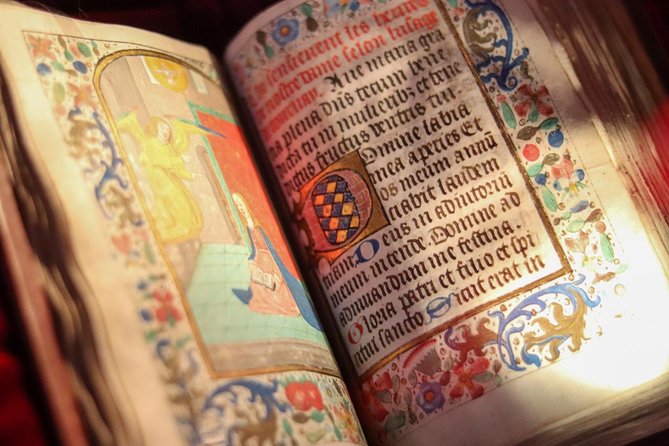 sensieuent les heures
nostre dame selon lusage
Aue maria gra
tia plena dn̄s tecum bene
dicta tu in mulieribꝫ et bene
dictus fructus ventris tui
Domine labia
mea aperies Et
os meum annū
ciabit laudem
tuam Deus in adiutoriū
meum intende. Domine ad
adiuuandum me festina.
Gloria patri et filio et spi
ritui sancto Sicut erat in